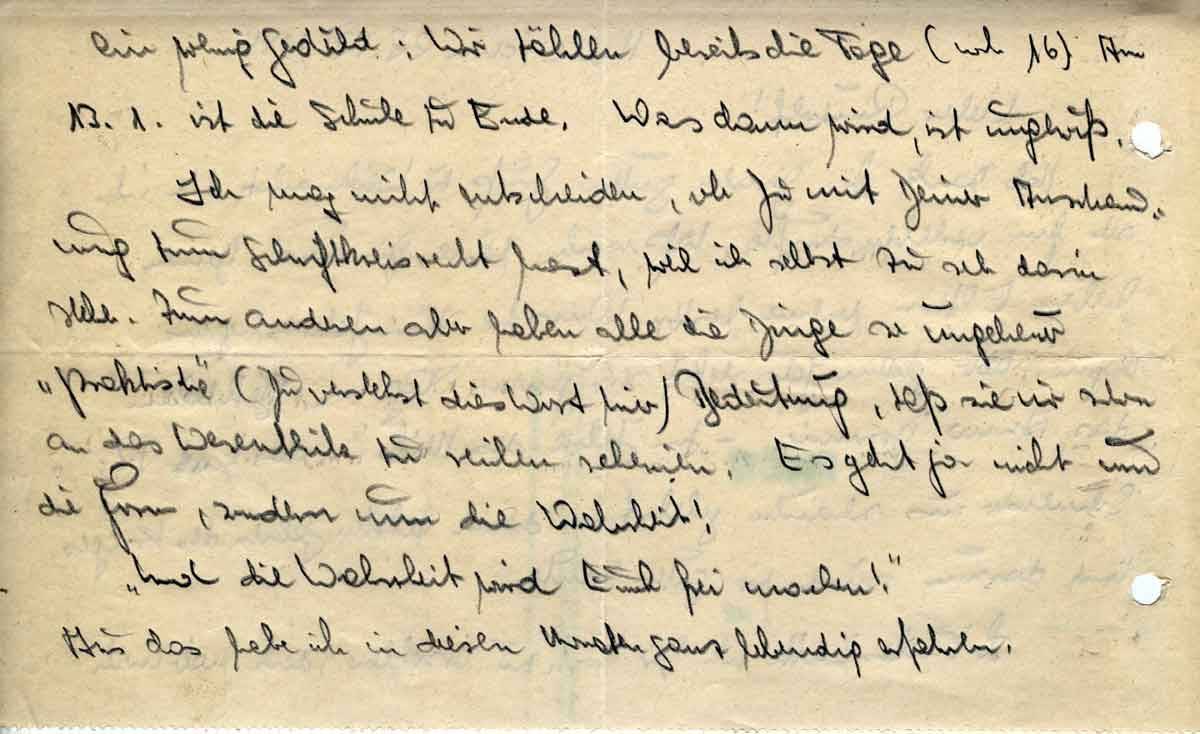 ein wenig Geduld: Wir zählen bereits die Tage (noch 16) Am
13. 1. ist die Schule zu Ende. Was dann wird, ist ungewiß.
Ich mag nicht entscheiden, ob Du mit Deiner Anschau-
ung zum Schriftkreis recht hast, weil ich selbst zu sehr darin
stehe. Zum anderen aber haben alle die Dinge so ungeheuer
„praktische" (Du verstehst dies Wort hier) Bedeutung, daß sie mir schon
an das Wesentliche zu rühren scheinen. Es geht ja nicht um
die Form, sondern um die Wahrheit!
„Und die Wahrheit wird Euch frei machen!"
das habe ich in diesen Monaten ganz lebendig erfahren.